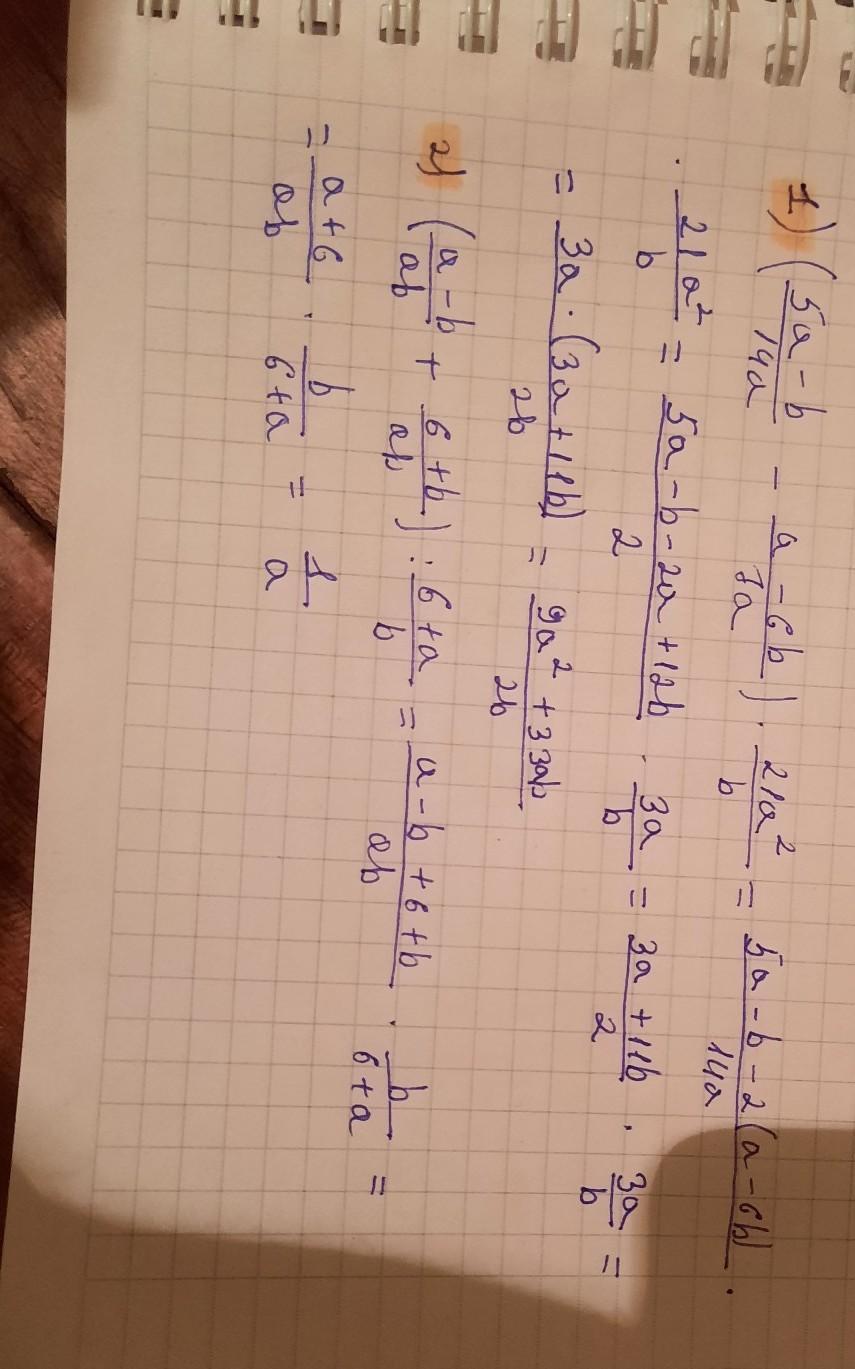 1) (5a - b / 14a - a - 6b / 7a) · 21a² / b = 5a - b - 2(a - 6b) / 14a ·
· 21a² / b = 5a - b - 2a + 12b / 2 · 3a / b = 3a + 11b / 2 · 3a / b =
= 3a · (3a + 11b) / 2b = 9a² + 33ab / 2b
2) (a - b / ab + 6 + b / ab) : 6 + a / b = a - b + 6 + b / ab · b / 6 + a =
= a + 6 / ab · b / 6 + a = 1 / a